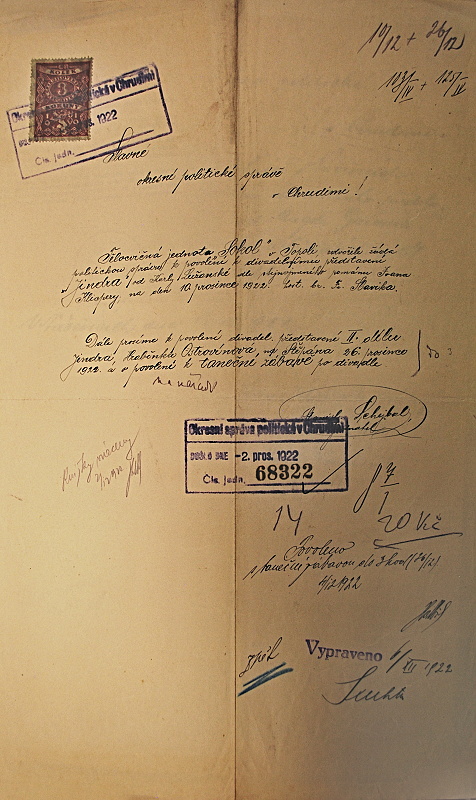 10/12 + 26/12
103/IV + 125/IV
3
Okresní politická v Chrudimi
pros. 1922
Čís. jedn.
Slavné
okresní politické správě
v Chrudimi!
Tělocvičná jednota "Sokol" v Topoli, uctivě žádá
politickou správu k povolení k divadelnímu představení
"Jindra" od Karly Lužanské dle stejnojmenného románu Ivana
Klicpery na den 10. prosince 1922.
Dále prosíme k povolení divadel. představení II. dílu
Jindra, Hraběnka Ostrovínová, na Štěpána 26. prosince
1922 a o povolení k taneční zábavě po divadle
Okresní správa politická v Chrudimi
DOŠLO DNE -2. pros. 1922
Čís. jedn. 68322
14
20 Kč
Povoleno
s taneční zábavou do 3 hod (26/12)
4/12 1922
zpět
Vypraveno 6/XII 1922